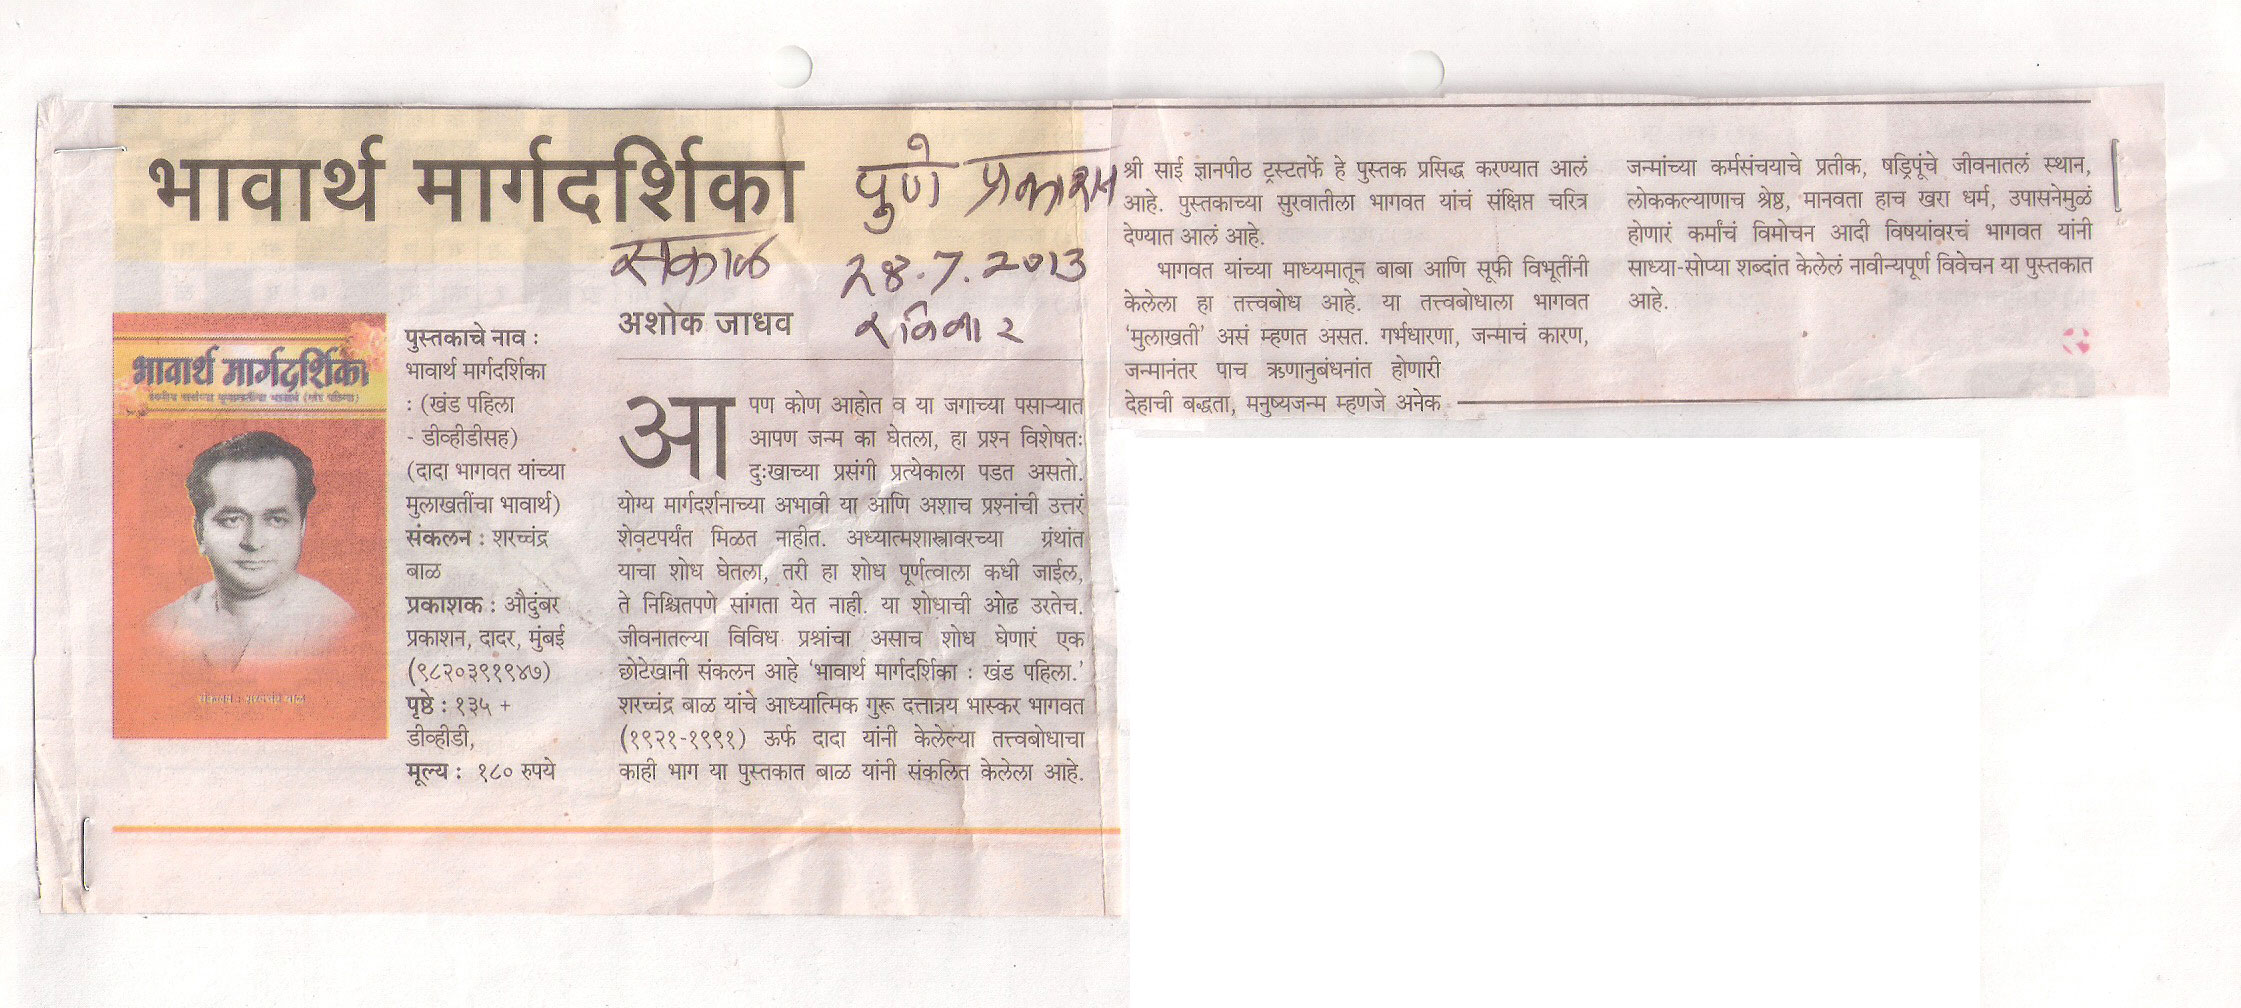 भावार्थ मार्गदर्शिका
पुणे प्रकाशन
सकाळ
28.7.2013
रविवार
अशोक जाधव
भावार्थ मार्गदर्शिका
संकलन : शरच्चंद्र बाळ
पुस्तकाचे नाव :
भावार्थ मार्गदर्शिका
: (खंड पहिला
- डीव्हीडीसह)
(दादा भागवत यांच्या
मुलाखतींचा भावार्थ)
संकलन : शरच्चंद्र
बाळ
प्रकाशक : औदुंबर
प्रकाशन, दादर, मुंबई
(९८२०३९१९४७)
पृष्ठे : १३५ +
डीव्हीडी,
मूल्य : १८० रुपये
आपण कोण आहोत व या जगाच्या पसाऱ्यात
आपण जन्म का घेतला, हा प्रश्न विशेषतः
दुःखाच्या प्रसंगी प्रत्येकाला पडत असतो.
योग्य मार्गदर्शनाच्या अभावी या आणि अशाच प्रश्नांची उत्तरं
शेवटपर्यंत मिळत नाहीत. अध्यात्मशास्त्रावरच्या ग्रंथांत
याचा शोध घेतला, तरी हा शोध पूर्णत्वाला कधी जाईल,
ते निश्चितपणे सांगता येत नाही. या शोधाची ओढ उरतेच.
जीवनातल्या विविध प्रश्नांचा असाच शोध घेणारं एक
छोटेखानी संकलन आहे ‘भावार्थ मार्गदर्शिका : खंड पहिला.’
शरच्चंद्र बाळ यांचे आध्यात्मिक गुरू दत्तात्रय भास्कर भागवत
(१९२१-१९९१) ऊर्फ दादा यांनी केलेल्या तत्त्वबोधाचा
काही भाग या पुस्तकात बाळ यांनी संकलित केलेला आहे.
श्री साई ज्ञानपीठ ट्रस्टतर्फे हे पुस्तक प्रसिद्ध करण्यात आलं
आहे. पुस्तकाच्या सुरवातीला भागवत यांचं संक्षिप्त चरित्र
देण्यात आलं आहे.
भागवत यांच्या माध्यमातून बाबा आणि सूफी विभूतींनी
केलेला हा तत्त्वबोध आहे. या तत्त्वबोधाला भागवत
‘मुलाखती’ असं म्हणत असत. गर्भधारणा, जन्माचं कारण,
जन्मानंतर पाच ऋणानुबंधनांत होणारी
देहाची बद्धता, मनुष्यजन्म म्हणजे अनेक
जन्मांच्या कर्मसंचयाचे प्रतीक, षड्रिपूंचे जीवनातलं स्थान,
लोककल्याणाच श्रेष्ठ, मानवता हाच खरा धर्म, उपासनेमुळं
होणारं कर्मांचं विमोचन आदी विषयांवरचं भागवत यांनी
साध्या-सोप्या शब्दांत केलेलं नावीन्यपूर्ण विवेचन या पुस्तकात
आहे.